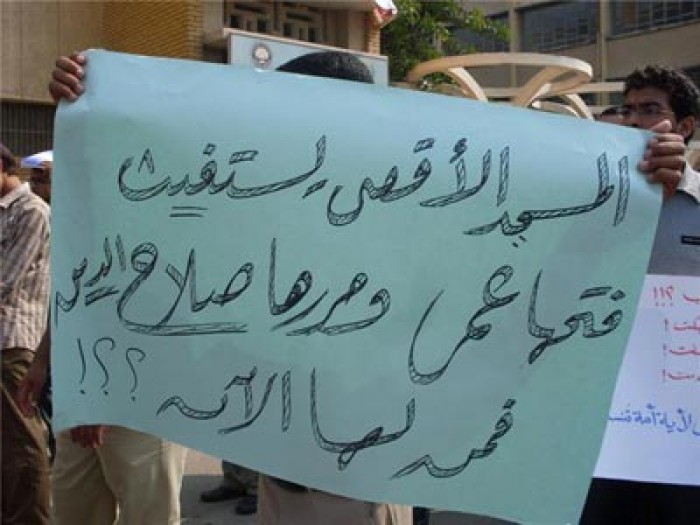 المسجد الأقصى يستغيث
فتحها عمر وحررها صلاح الدين
فمن لها الآن ؟؟!
!!؟
الأمة أمة